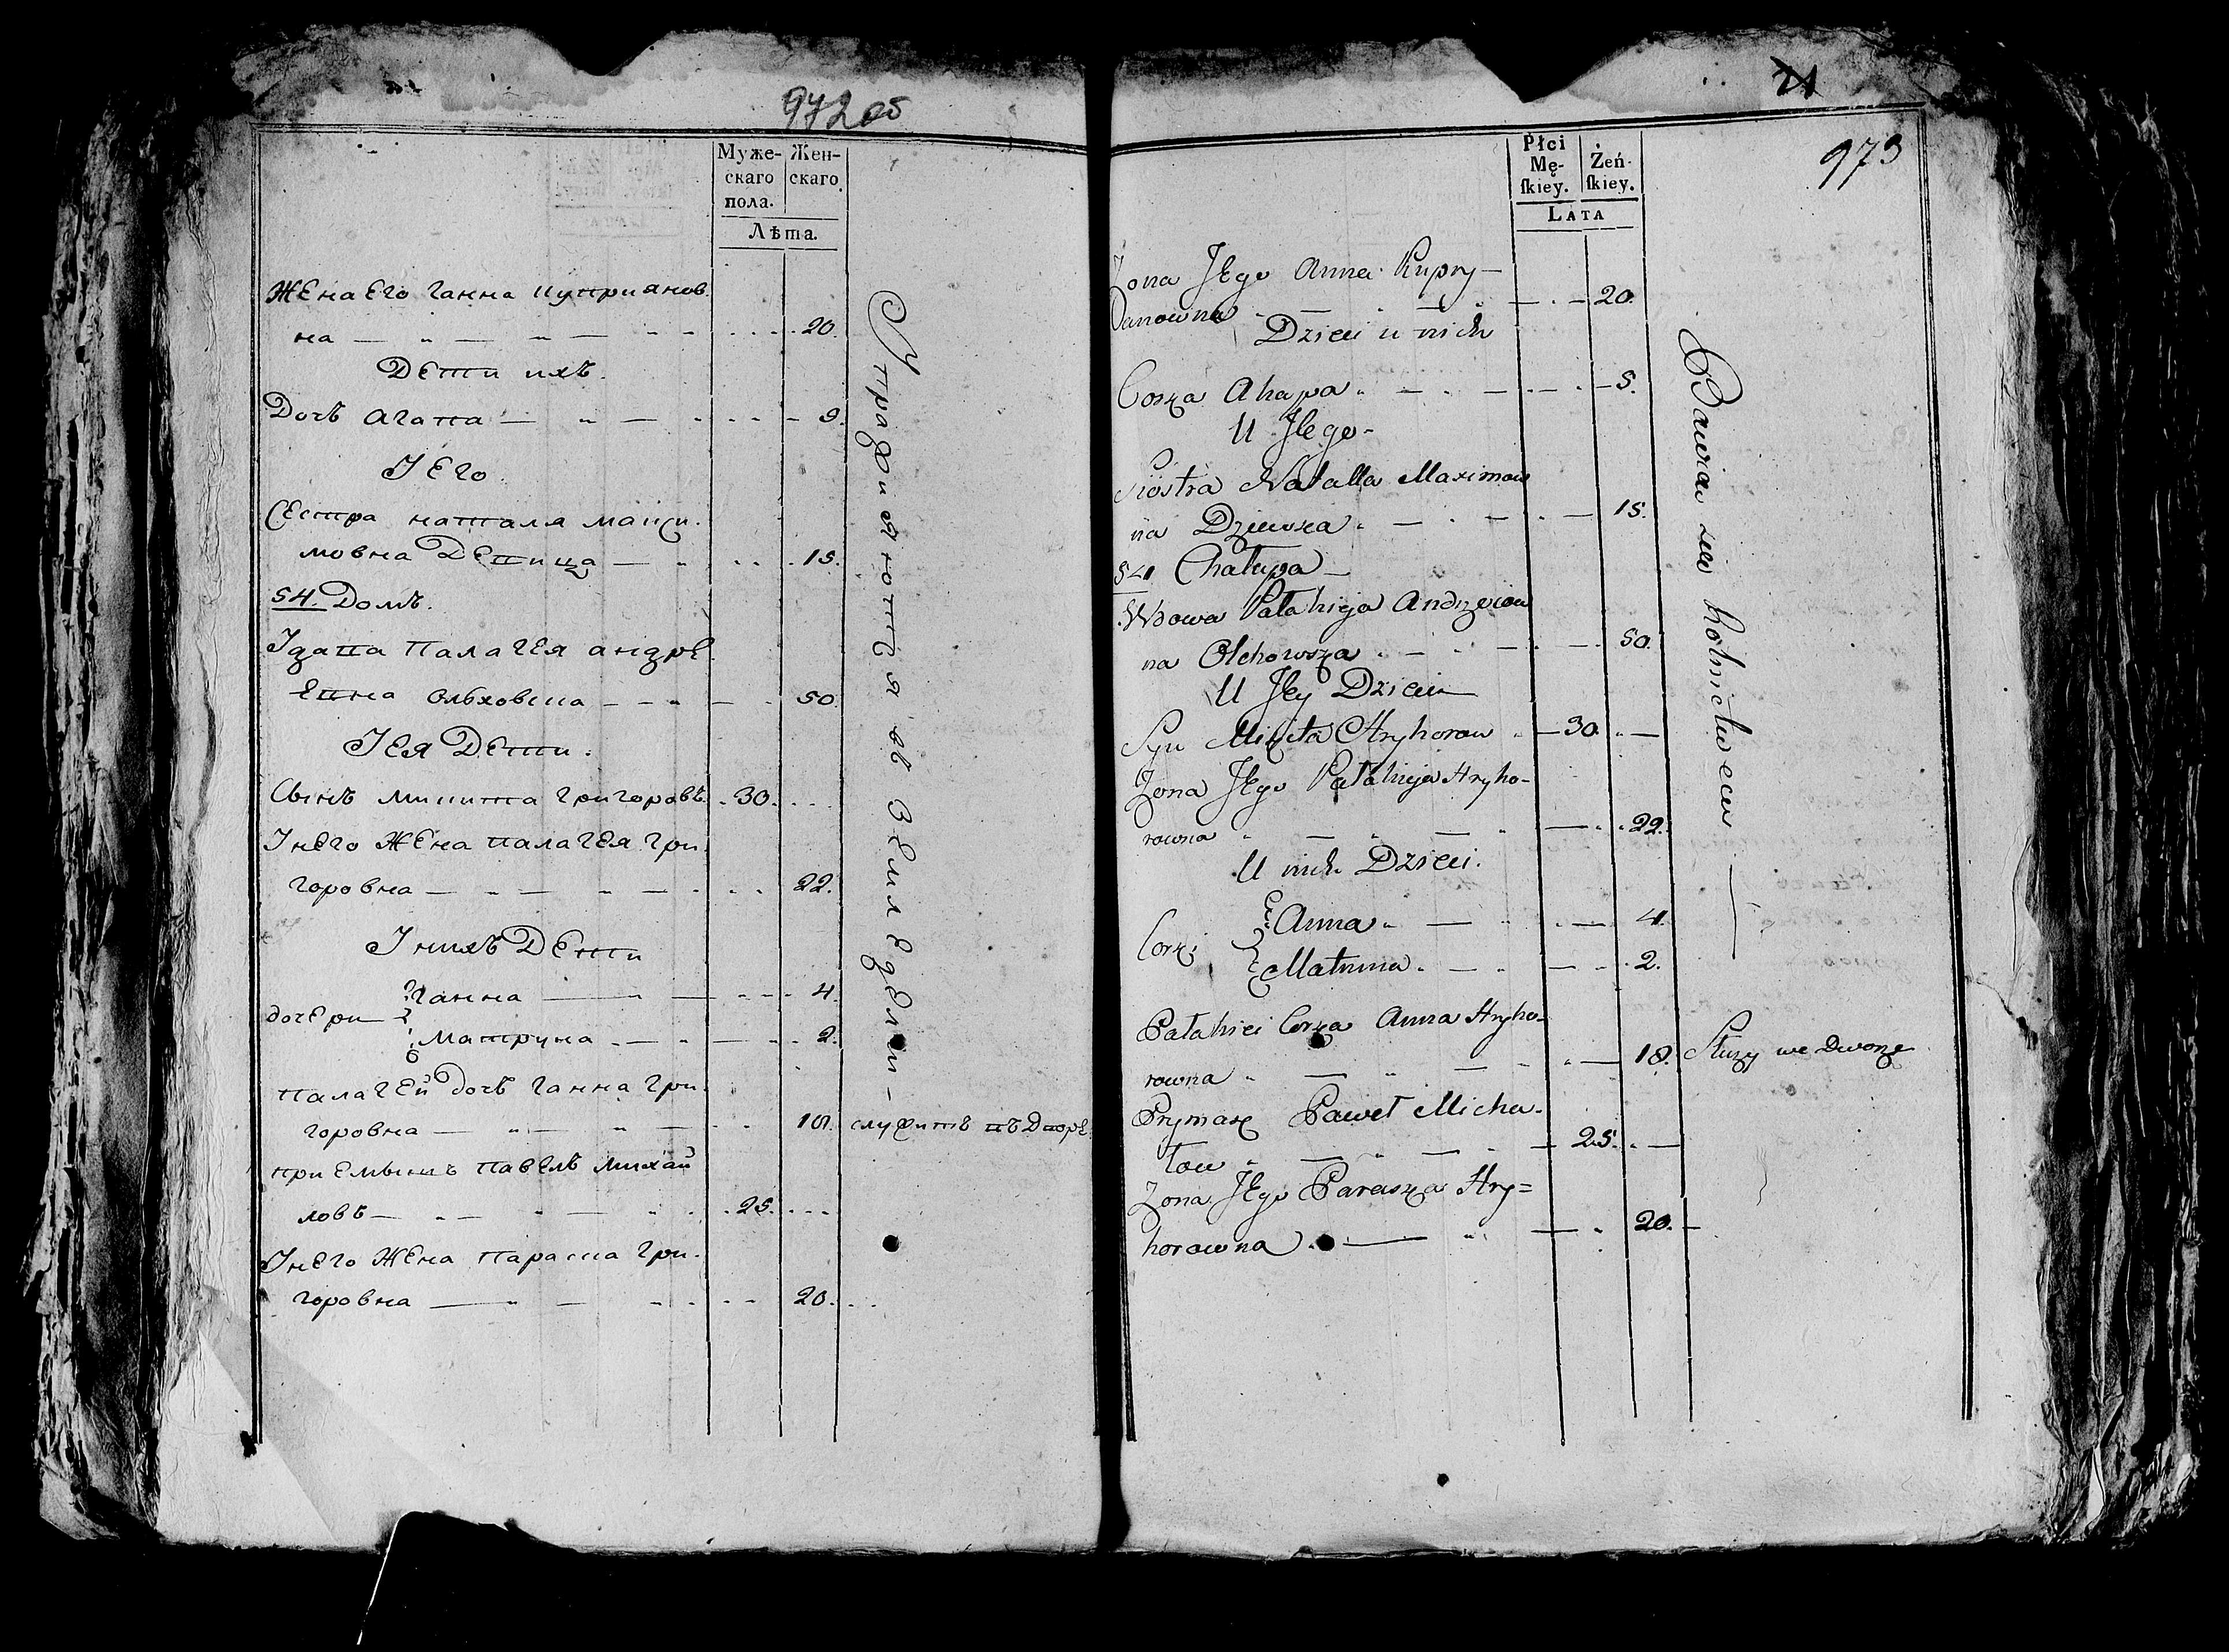 972 об
Муже-
скаго
пола.
Жен-
скаго
Лѣта.
Жена Его Ганна Куприанов.
на 20.
Дети ихъ.
Дочь Агапа 9.
І Его
Сестра Наталя Макси.
мовна Девица 15.
54. Домъ.
Удава Палагея Андре
Евна Ольховска 50
І Ея Дети.
Сынъ Микита Григоровъ. 30.
У нЕго Жена Палагея Гри.
горовна 22.
У нихъ Дети
дочери
Ганна 4.
Матруна 2.
Палагей дочь Ганна Гри.
горовна 18. служитъ въ Дворе
приемышъ Павелъ Михай
ловъ 25.
У нЕго Жена Параска Гри.
горовна 20.
Упражняются въ Земледелии
21
973
Płci
Mę-
ſkiey.
Żeń-
ſkiey.
LATA
Zona Jego Anna Kupry-
Janowna 20.
Dzieci u nich
Corka Ahapa 9.
U Jego
Siostra Natalla Maximow
na Dziewka 15.
54 Chałupa
Wdowa Pałahija Andrzeiow
na Olchowska 50.
U Jey Dzieci
Syn Mikita Hryhorow 30.
Zona Jego Pałahija Hryho-
rowna 22.
U nich Dzieci.
Corki
Anna 4.
Matruna 2.
Pałahiei Corka Anna Hryho-
rowna 18. Słuzy we Dworze
Prymak Paweł Micha-
łow 25.
Zona Jego Paraska Hry=
horowna 20.
Bawia sie Rolnictwem